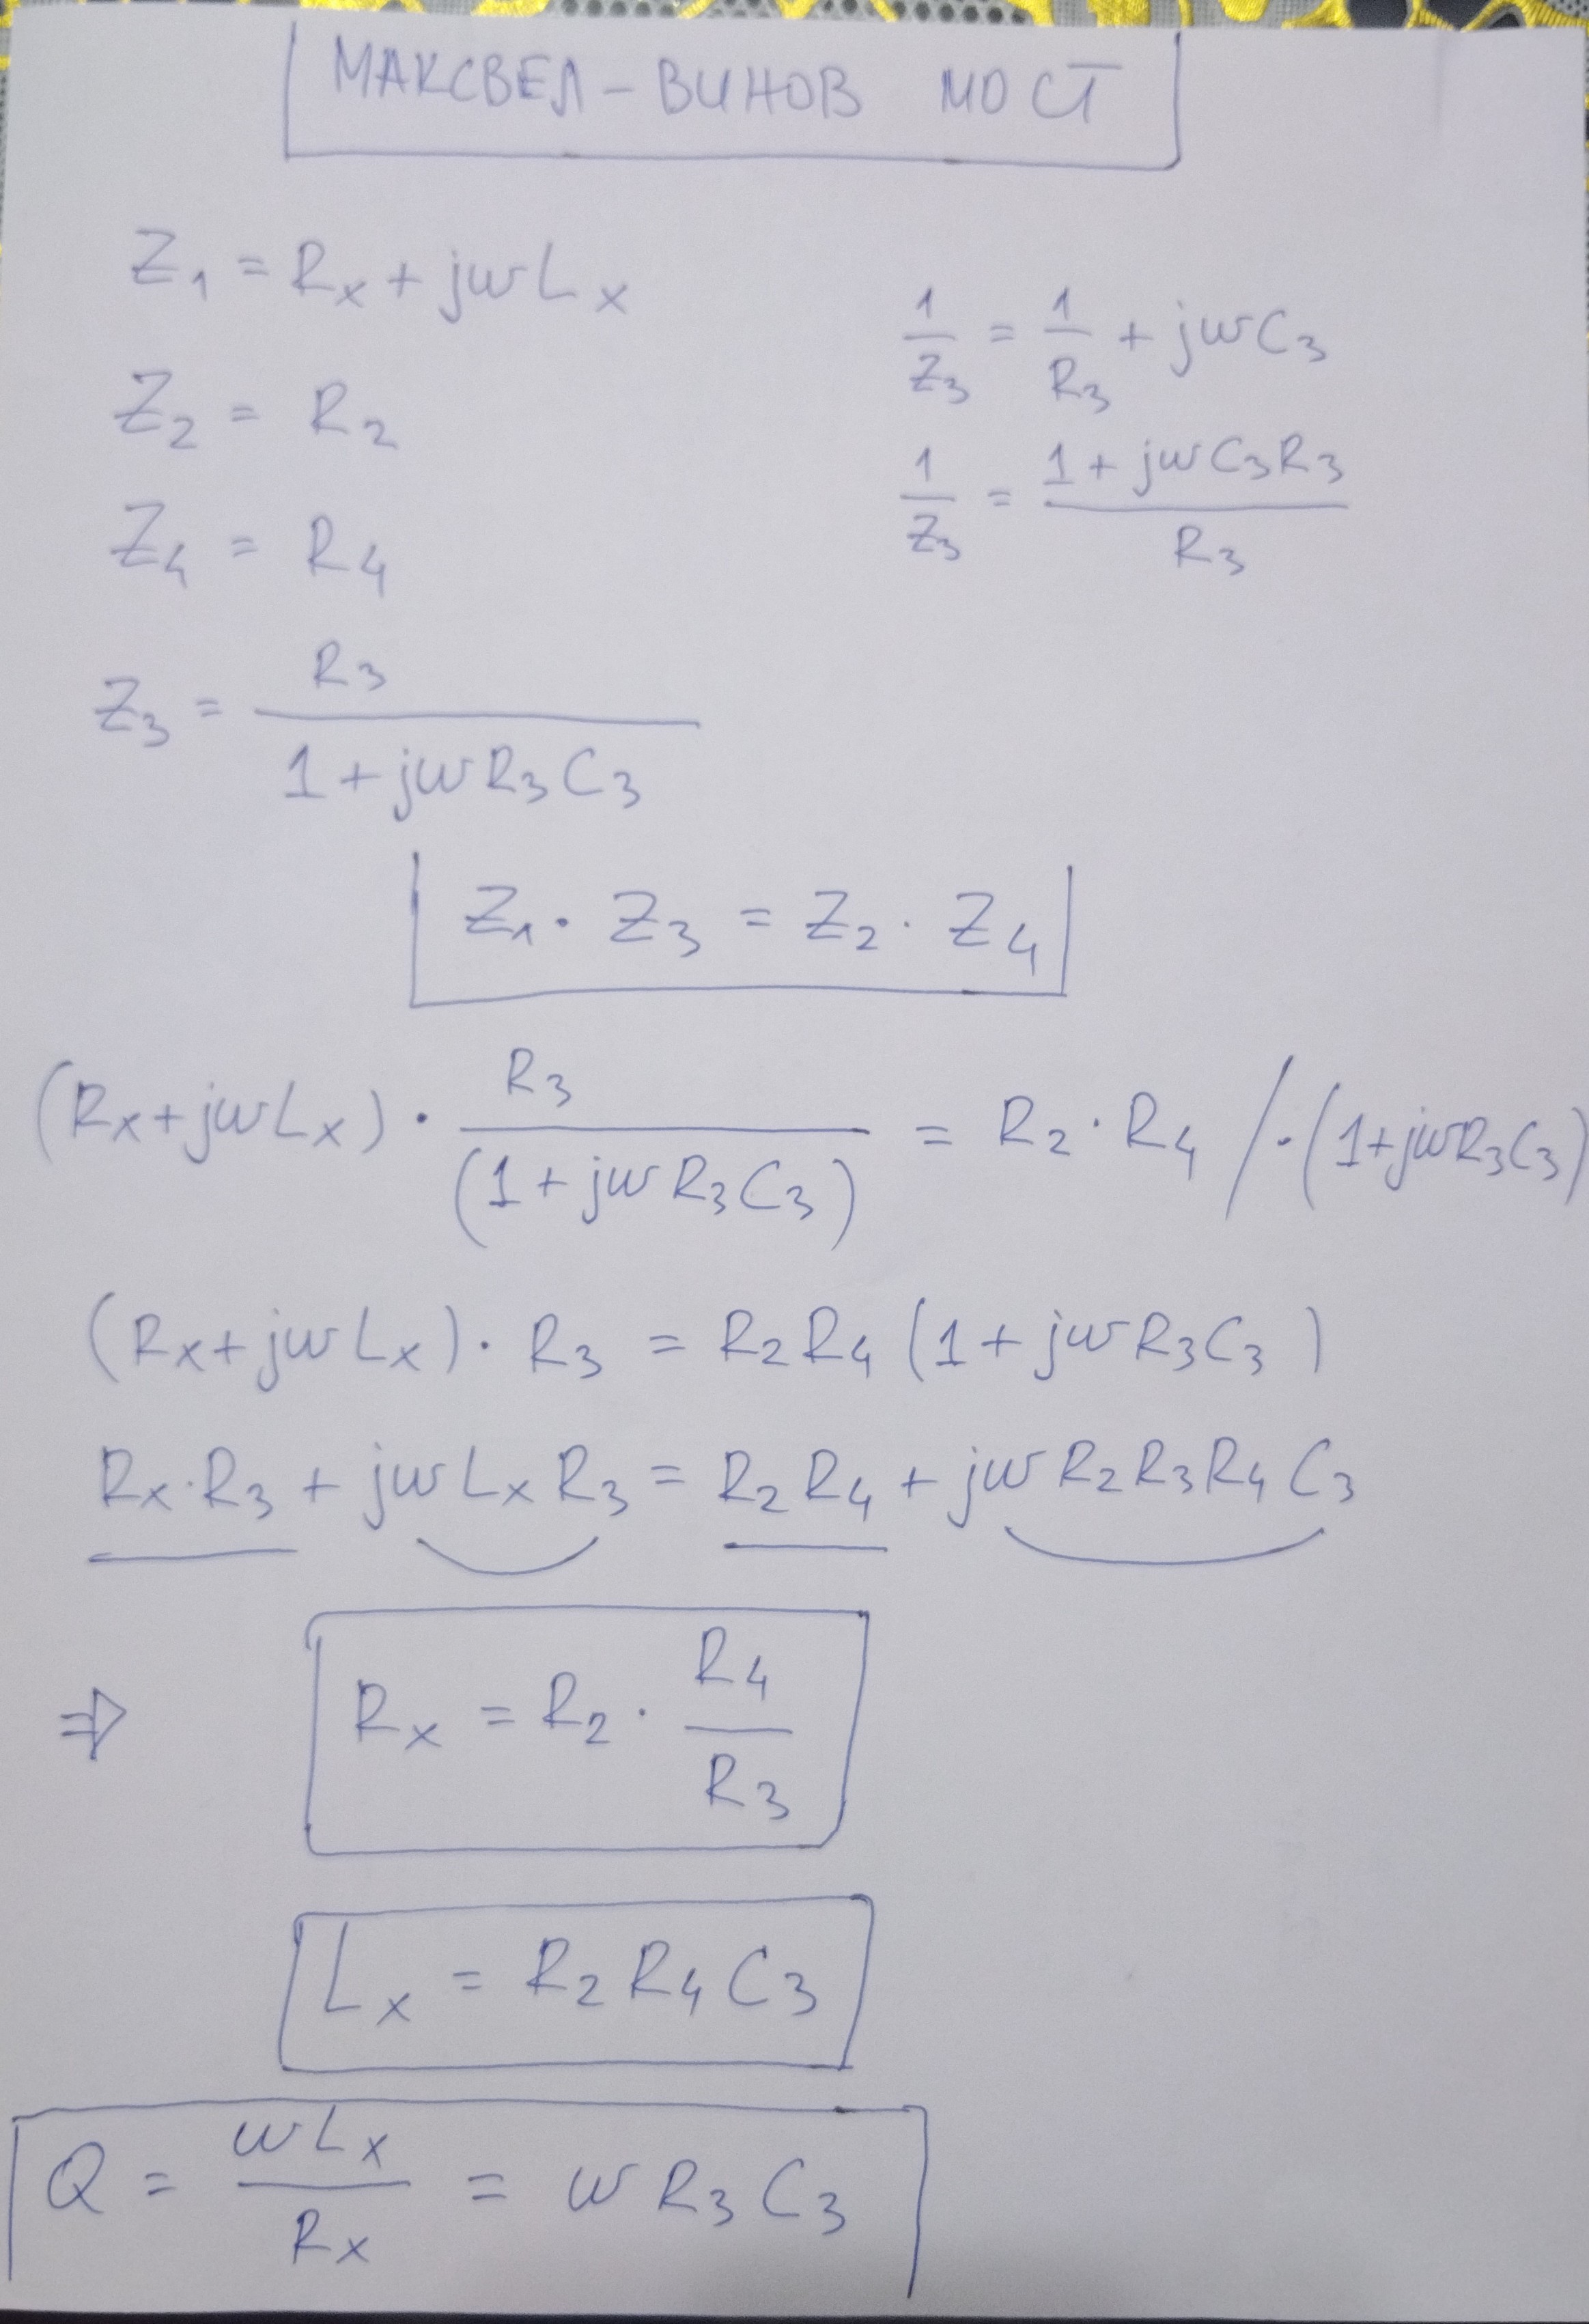 МАКСВЕЛ-ВИНОВ МОСТ
Z₁ = Rₓ + jωLₓ
Z₂ = R₂
Z₄ = R₄
Z₃ = R₃ / (1 + jωR₃C₃)
1/Z₃ = 1/R₃ + jωC₃
1/Z₃ = (1 + jωC₃R₃) / R₃
Z₁ · Z₃ = Z₂ · Z₄
(Rₓ + jωLₓ) · R₃ / (1 + jωR₃C₃) = R₂ · R₄ / · (1 + jωR₃C₃)
(Rₓ + jωLₓ) · R₃ = R₂R₄ (1 + jωR₃C₃)
Rₓ · R₃ + jωLₓR₃ = R₂R₄ + jωR₂R₃R₄C₃
⇒ Rₓ = R₂ · R₄/R₃
Lₓ = R₂R₄C₃
Q = ωLₓ/Rₓ = ωR₃C₃